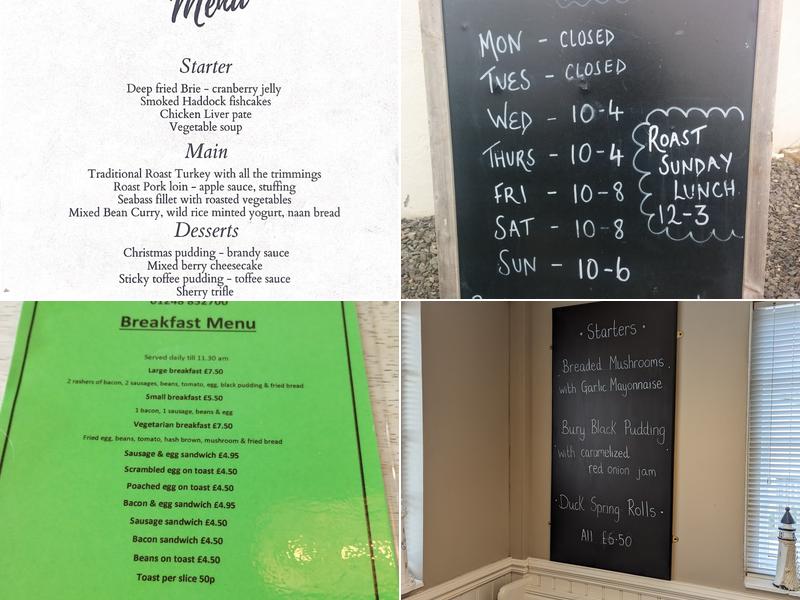 Menu
Starter
Deep fried Brie - cranberry jelly
Smoked Haddock fishcakes
Chicken Liver pate
Vegetable soup
Main
Traditional Roast Turkey with all the trimmings
Roast Pork loin - apple sauce, stuffing
Seabass fillet with roasted vegetables
Mixed Bean Curry, wild rice minted yogurt, naan bread
Desserts
Christmas pudding - brandy sauce
Mixed berry cheesecake
Sticky toffee pudding - toffee sauce
Sherry trifle
MON - CLOSED
TUES - CLOSED
WED - 10-4
THURS - 10-4
FRI - 10-8
SAT - 10-8
SUN - 10-6
ROAST
SUNDAY
LUNCH
12-3
01248 852700
Breakfast Menu
Served daily till 11.30 am
Large breakfast £7.50
2 rashers of bacon, 2 sausages, beans, tomato, egg, black pudding & fried bread
Small breakfast £5.50
1 bacon, 1 sausage, beans & egg
Vegetarian breakfast £7.50
Fried egg, beans, tomato, hash brown, mushroom & fried bread
Sausage & egg sandwich £4.95
Scrambled egg on toast £4.50
Poached egg on toast £4.50
Bacon & egg sandwich £4.95
Sausage sandwich £4.50
Bacon sandwich £4.50
Beans on toast £4.50
Toast per slice 50p
· Starters ·
Breaded Mushrooms
with Garlic Mayonnaise
Bury Black Pudding
with caramelized
red onion jam
· Duck Spring Rolls ·
All £6.50